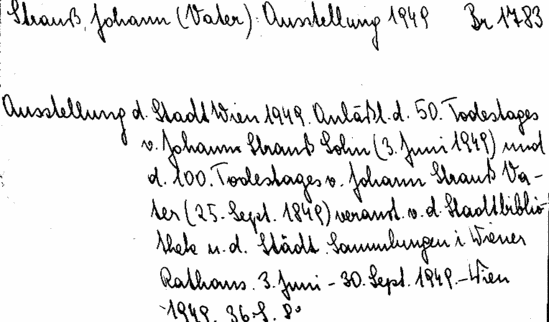 Strauß, Johann (Vater): Ausstellung 1949 Br 1783
Ausstellung d. Stadt Wien 1949. Anläßl. d. 50. Todestages
v. Johann Strauß Sohn (3. Juni 1949) und
d. 100. Todestages v. Johann Strauß Va-
ter (25. Sept. 1849) veranst. v. d. Stadtbiblio-
thek u. d. Städt. Sammlungen i. Wiener
Rathaus. 3. Juni - 30. Sept. 1949. - Wien
1949. 36 S. 8°